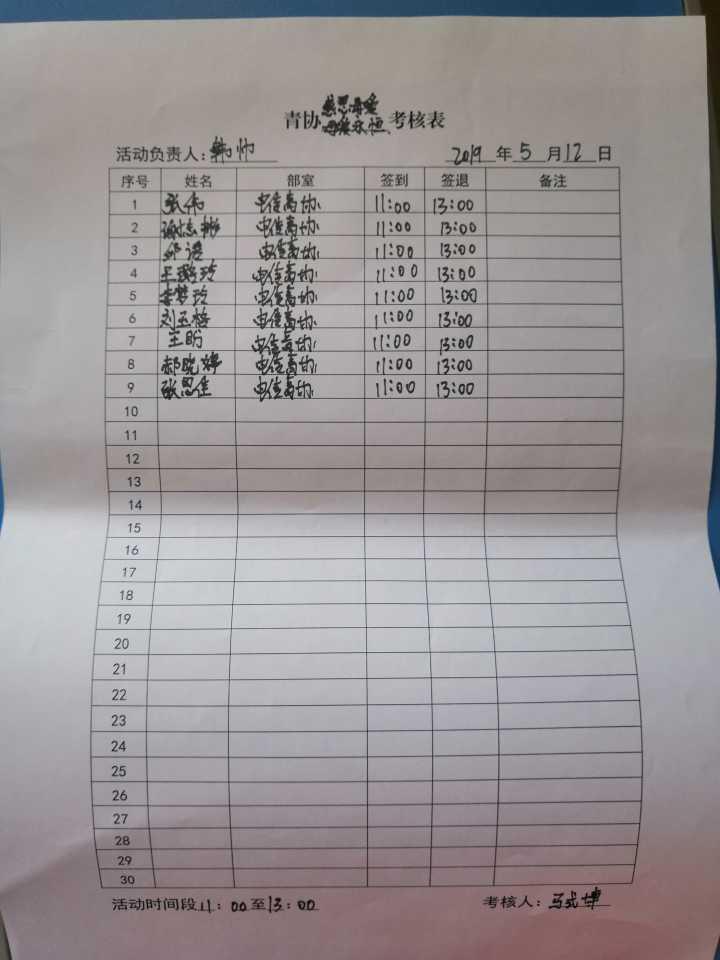 青协感恩母爱母爱永恒考核表
活动负责人:韩帅 2019年5月12日
序号 姓名 部室 签到 签退 备注
1 张伟 电信青协 11:00 13:00
2 电信青协 11:00 13:00
3 邱语 电信青协 11:00 13:00
4 王璐玲 电信青协 11:00 13:00
5 李梦玲 电信青协 11:00 13:00
6 刘玉格 电信青协 11:00 13:00
7 王盼 电信青协 11:00 13:00
8 郝晓婷 电信青协 11:00 13:00
9 张思佳 电信青协 11:00 13:00
10
11
12
13
14
15
16
17
18
19
20
21
22
23
24
25
26
27
28
29
30
活动时间段11:00至13:00 考核人:马成坤